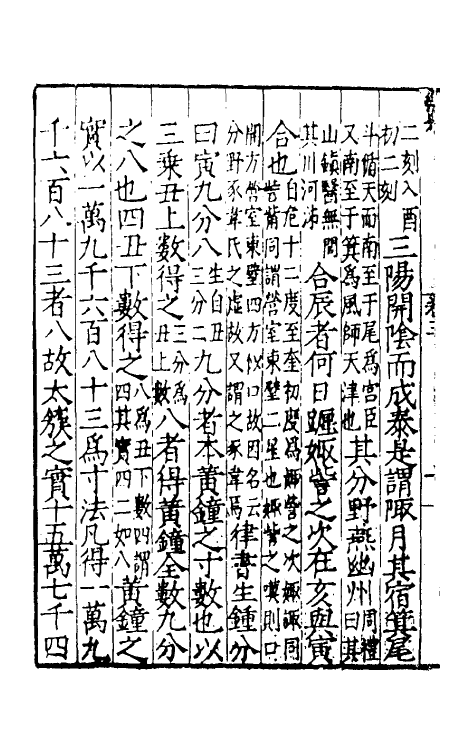 二刻入酉
初二刻三陽開陰而成泰是謂陬月其宿箕尾
斗偹天而南至于尾為宮臣
又南至于箕為風師天津也其分野燕幽州周禮曰其
山鎮醫無閭
其川河泲合辰者何日躔娵訾之次在亥與寅
合也自危十二度至奎初度為娵訾之次娵諏同
訾觜同謂營室東壁二星也娵訾之嘆則口
開方營室東壁四方似口故因名云
分野豕韋氏之虛故又謂之豕韋焉律書生鍾分
曰寅九分八生自丑
三分二九分者本黃鐘之寸數也以
三乘丑上數得之三分為
丑上數八者得黃鐘全數九分
之八也四丑下數得之八為丑下數四謂
四其實四二如八黃鐘之
實以一萬九千六百八十三為寸法凡得一萬九
千六百八十三者八故太簇之實十五萬七千四
卷三